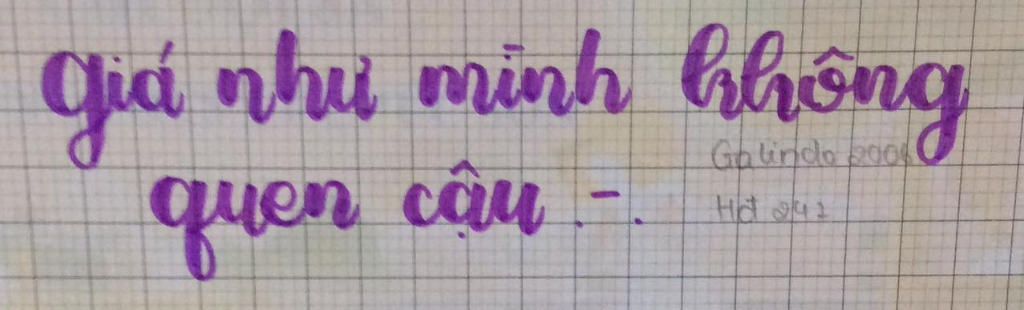 giá như mình không
quen cậu .-.
Galindo 2006
Hđt 242